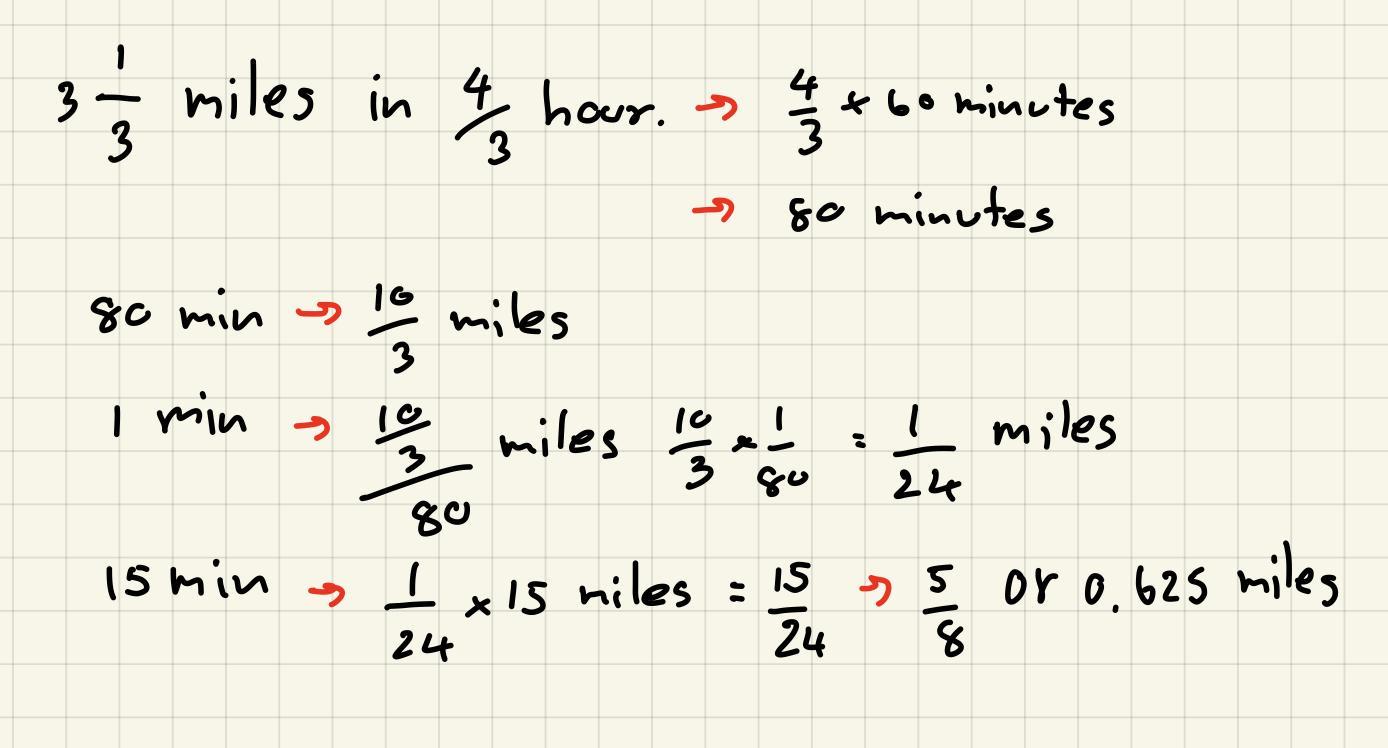 3 1/3 miles in 4/3 hour. → 4/3 × 60 minutes
→ 80 minutes
80 min → 10/3 miles
1 min → 10/3/80 miles 10/3 × 1/80 = 1/24 miles
15 min → 1/24 × 15 miles = 15/24 → 5/8 or 0.625 miles